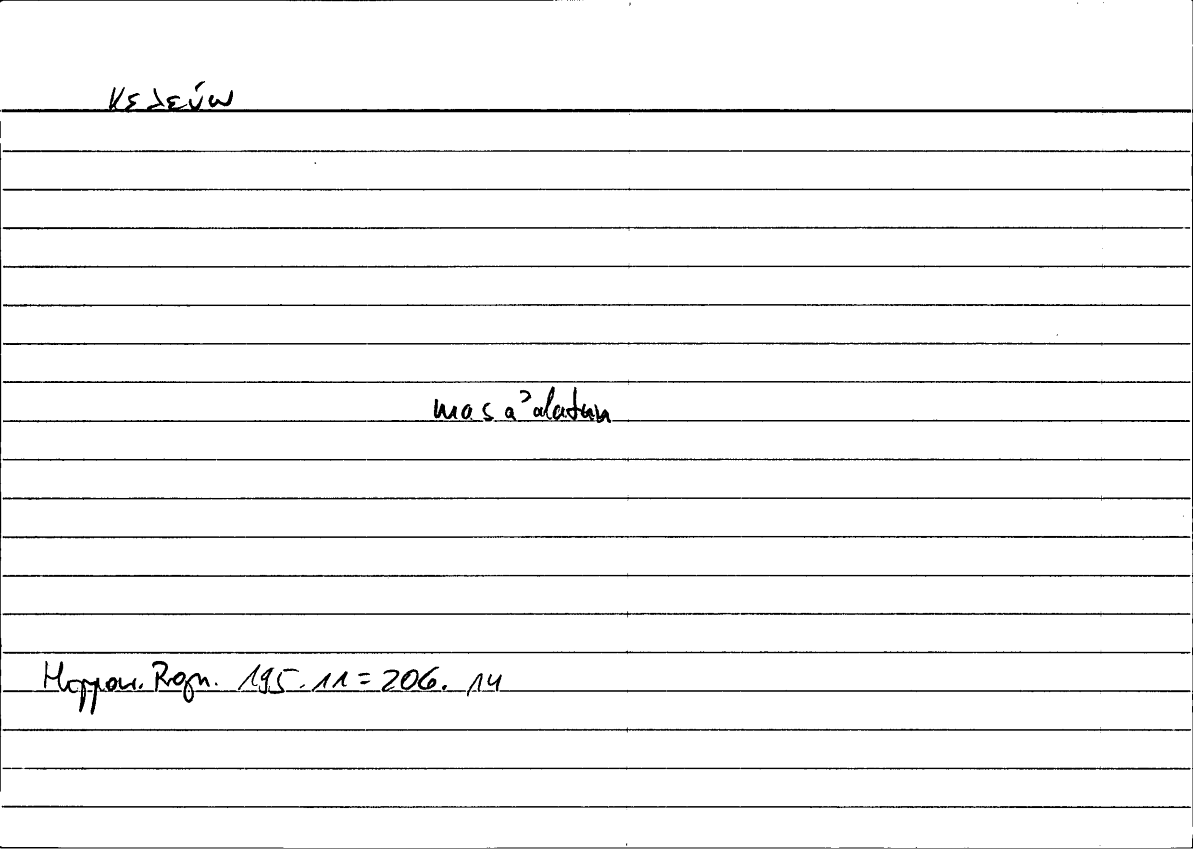 κελεύω
masaʾalatun
Hippon. Rogn. 195. 11 = 206. 14